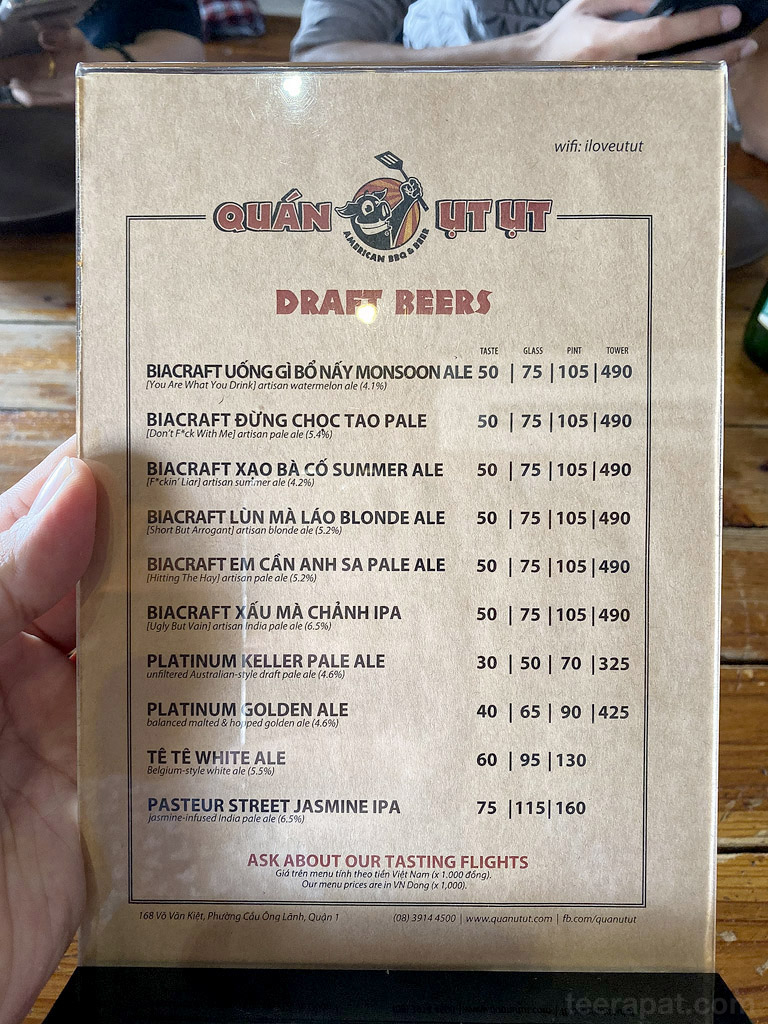 wifi: iloveutut
QUÁN ỤT ỤT
AMERICAN BBQ & BEER
DRAFT BEERS
TASTE GLASS PINT TOWER
BIACRAFT UỐNG GÌ BỔ NẤY MONSOON ALE 50 | 75 | 105 | 490
[You Are What You Drink] artisan watermelon ale (4.1%)
BIACRAFT ĐỪNG CHỌC TAO PALE 50 | 75 | 105 | 490
[Don't F*ck With Me] artisan pale ale (5.4%)
BIACRAFT XẠO BÀ CỐ SUMMER ALE 50 | 75 | 105 | 490
[F*ckin' Liar] artisan summer ale (4.2%)
BIACRAFT LÙN MÀ LÁO BLONDE ALE 50 | 75 | 105 | 490
[Short But Arrogant] artisan blonde ale (5.2%)
BIACRAFT EM CẦN ANH SA PALE ALE 50 | 75 | 105 | 490
[Hitting The Hay] artisan pale ale (5.2%)
BIACRAFT XẤU MÀ CHẢNH IPA 50 | 75 | 105 | 490
[Ugly But Vain] artisan India pale ale (6.5%)
PLATINUM KELLER PALE ALE 30 | 50 | 70 | 325
unfiltered Australian-style draft pale ale (4.6%)
PLATINUM GOLDEN ALE 40 | 65 | 90 | 425
balanced malted & hopped golden ale (4.6%)
TÊ TÊ WHITE ALE 60 | 95 | 130
Belgium-style white ale (5.5%)
PASTEUR STREET JASMINE IPA 75 | 115 | 160
jasmine-infused India pale ale (6.5%)
ASK ABOUT OUR TASTING FLIGHTS
Giá trên menu tính theo tiền Việt Nam (x 1.000 đồng).
Our menu prices are in VN Dong (x 1,000).
168 Võ Văn Kiệt, Phường Cầu Ông Lãnh, Quận 1 (08) 3914 4500 | www.quanutut.com | fb.com/quanutut
teerapat.com